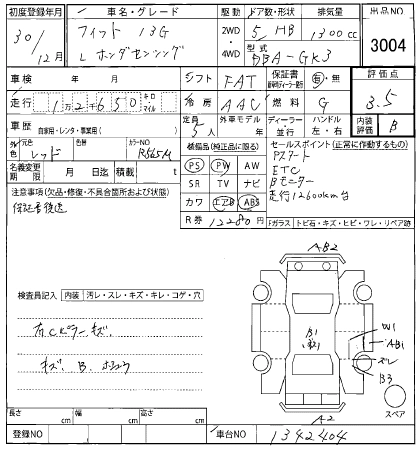 初度登録年月 車名・グレード 駆動 ドア数・形状 排気量 出品NO
30/12月 フィット 13G 2WD・4WD 5 HB 1300cc 3004
L ホンダセンシング 型式 DBA-GK3
車検 年 月 シフト FAT 保証書 有・無 評価点
走行 12650 キロ・マイル 冷房 AAC 燃料 G 3.5
車歴 自家用・レンタ・事業用( ) 定員 5人 外車モデル 年 ディーラー 並行 ハンドル 左・右 内装評価 B
外色 元色 レッド 色替 カラーNO R565M 装備品(純正品に限る) セールスポイント(正常に作動するもの)
名義変更期限 月 日迄 積載 t PS PW AW Pスタート
注意事項(欠品・修復・不具合箇所および状態) SR TV ナビ ETC
保証書後送 カワ エアB ABS Bモニター
R券 12280円 走行12600km台
Fガラス トビ石・キズ・ヒビ・ワレ・リペア跡
AB2
検査員記入 内装 汚レ・スレ・キズ・キレ・コゲ・穴
右Cピラーキズ.
キズ. B.
B1
W1
AB1
ズレ
B3
A2
スペア
長さ cm 幅 cm 高さ cm
登録NO 車台NO 1342404